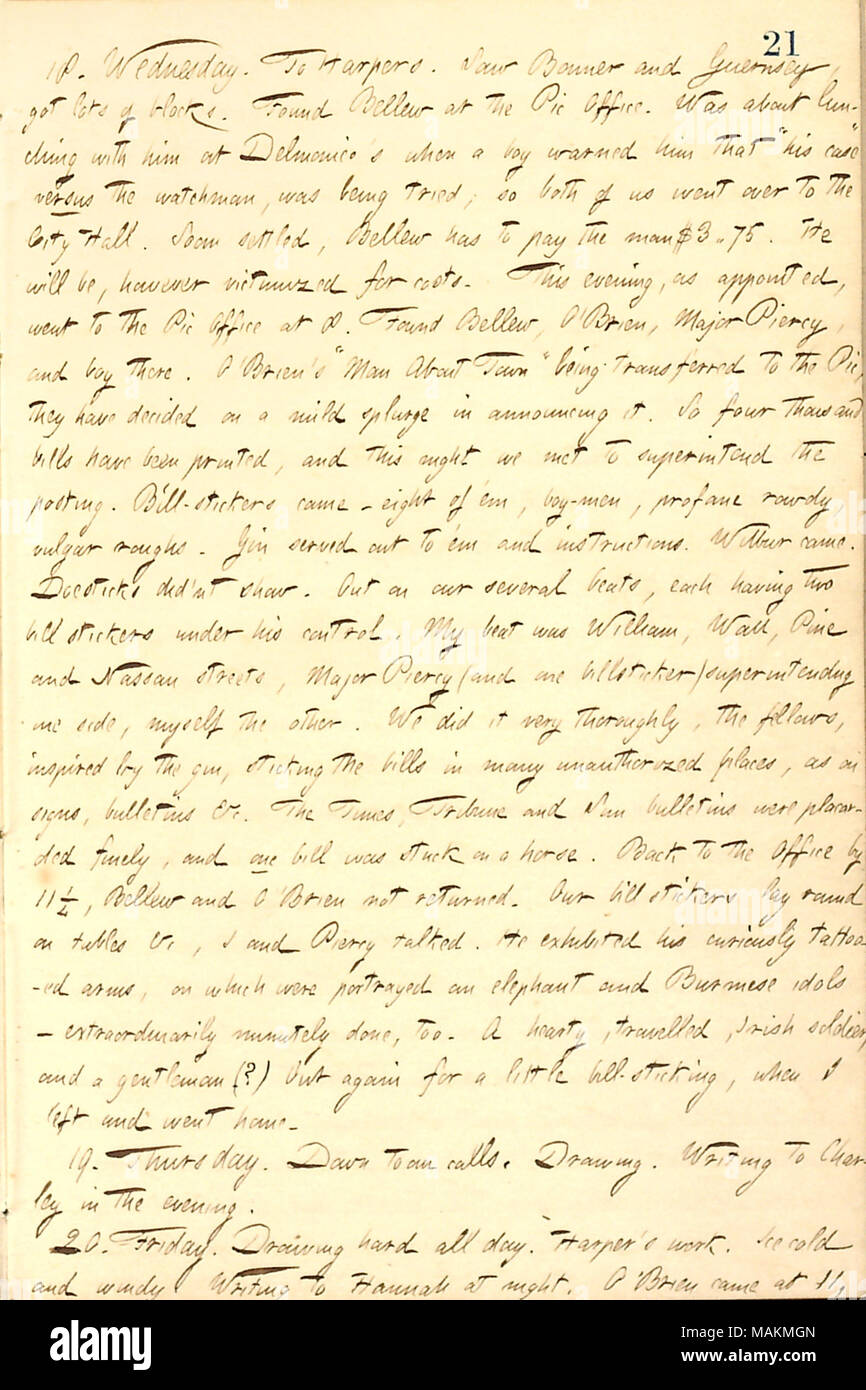 21
18. Wednesday. To Harpers. Saw Bonner and Guernsey,
got lots of blocks. Found Bellew at the Pic Office. Was about lun-
ching with him at Delmonico's when a boy warned him that "his case"
versus the watchman, was being tried; so both of us went over to the
City Hall. Soon settled, Bellew has to pay the man $3..75. He
will be, however victimized for costs. This evening, as appointed,
went to the Pic Office at 8. Found Bellew, O'Brien, Major Piercy,
and boy there. O'Brien's "Man About Town" being transferred to the Pic,
they have decided on a mild splurge in announcing it. So four thousand
bills have been printed, and this night we met to superintend the
posting. Bill-stickers came - eight of 'em, boy-men, profane rowdy,
vulgar roughs. Gin served out to 'em and instructions. Wilbur came.
Doesticks did'nt show. Out on our several beats, each having two
bill stickers under his control. My beat was William, Wall, Pine
and Nassau streets, Major Piercy (and one billsticker) superintending
one side, myself the other. We did it very thoroughly, the fellows,
inspired by the gin, sticking the bills in many unauthorized places, as on
signs, bulletins &c. The Times, Tribune and Sun bulletins were placar-
ded finely, and one bill was stuck on a horse. Back to the Office by
11 1/4, Bellew and O'Brien not returned. Our bill stickers lay round
on tables &c, I and Piercy talked. He exhibited his curiously tattoo-
-ed arms, on which were portrayed an elephant and Burmese idols
- extraordinarily minutely done, too. A hearty, travelled, Irish soldier,
and a gentleman (?) Out again for a little bill-sticking, when I
left and went home.
19. Thursday. Down town calls. Drawing. Writing to Char-
ley in the evening.
20. Friday. Drawing hard all day. Harper's work. Ice cold
and windy. Writing to Hannah at night. O'Brien came at 11,
alamy
Image ID: MAKMGN
www.alamy.com